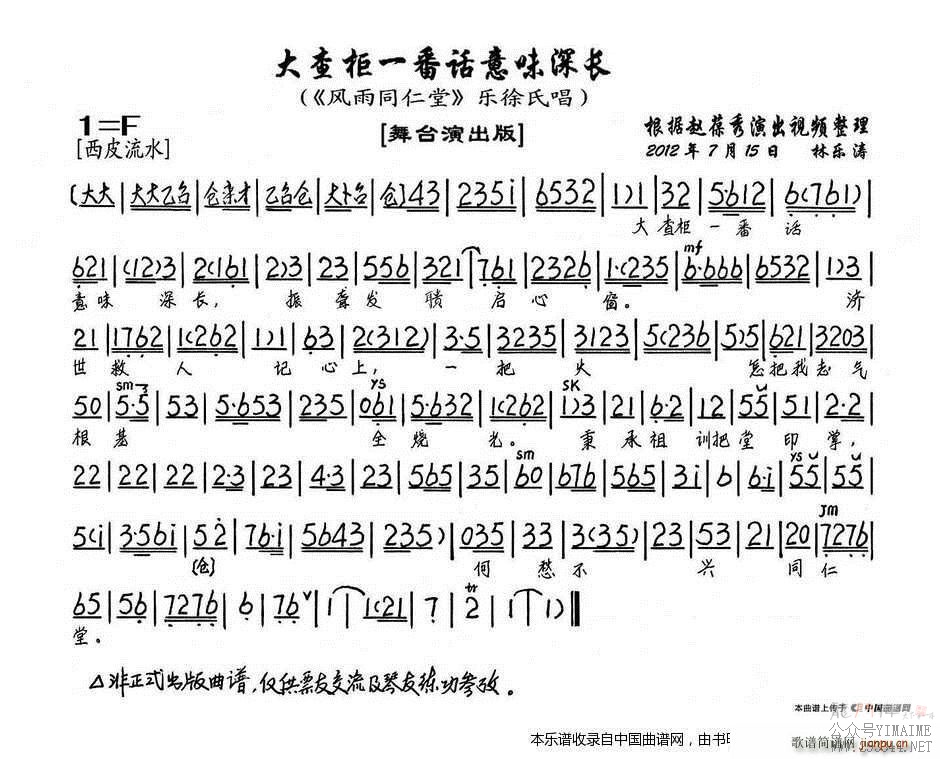 大查柜一番话意味深长
(《风雨同仁堂》乐徐氏唱)
1=F
[舞台演出版]
根据赵葆秀演出视频整理
[西皮流水]
2012年7月15日 林乐涛
(大大|大大乙台|仓来才|乙台仓|大卜台|仓)43|235i|6532|1)1|32|5·612|6(761)|
大查柜一番话
621|(12)3|2(161|2)3|23|556|321|1|761|2326|1·(235|6·666|6532|1)3|
mf
意味深长, 振聋发聩启心窗。 济
21|1762|1(262|1)1|63|2(312)|3·5|3235|3123|5(236|5)5|621|3203|
世救人记心上, 一把火怎把我志气
sm 3 ys SK
50|5·5|53|5·653|235|061|5·632|1(262|1)3|21|6·2|12|55|51|2·2|
根基 全烧光。 秉承祖训把堂印掌,
sm ys
22|22|22|2·3|23|4·3|23|565|35|60|676|565|3i|6|6·i|55|55|
JM
5(i|3·56i|52|76·i|5643|235)|035|33|3(35)|23|53|21|20|7276|
[仓] 何愁不兴同仁
tr
65|56|7276|6|76|1|1(21|7|2|1|1)‖
堂。
△非正式出版曲谱,仅供票友交流及琴友练功参考。
本曲谱上传于 中国曲谱网
公众号YIMAIME
本乐谱收录自中国曲谱网,由书
歌谱简谱网 jianpu.cn